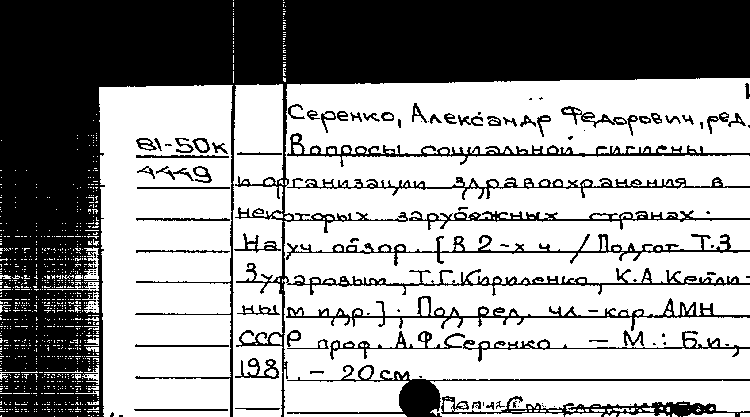 Серенко, Александр Федорович, ред.
81-50к Вопросы социальной гигиены
4449 и организации здравоохранения в
некоторых зарубежных странах:
Науч. обзор. [В 2-х ч. / Подгот. Т.З.
Зуфаровым, Т.Г.Кириленко, К.А.Кейли-
ным и др.]; Под ред. чл.-кор. АМН
СССР проф. А.Ф.Серенко. – М.: Б.и.,
1981. – 20 см.
См. след.